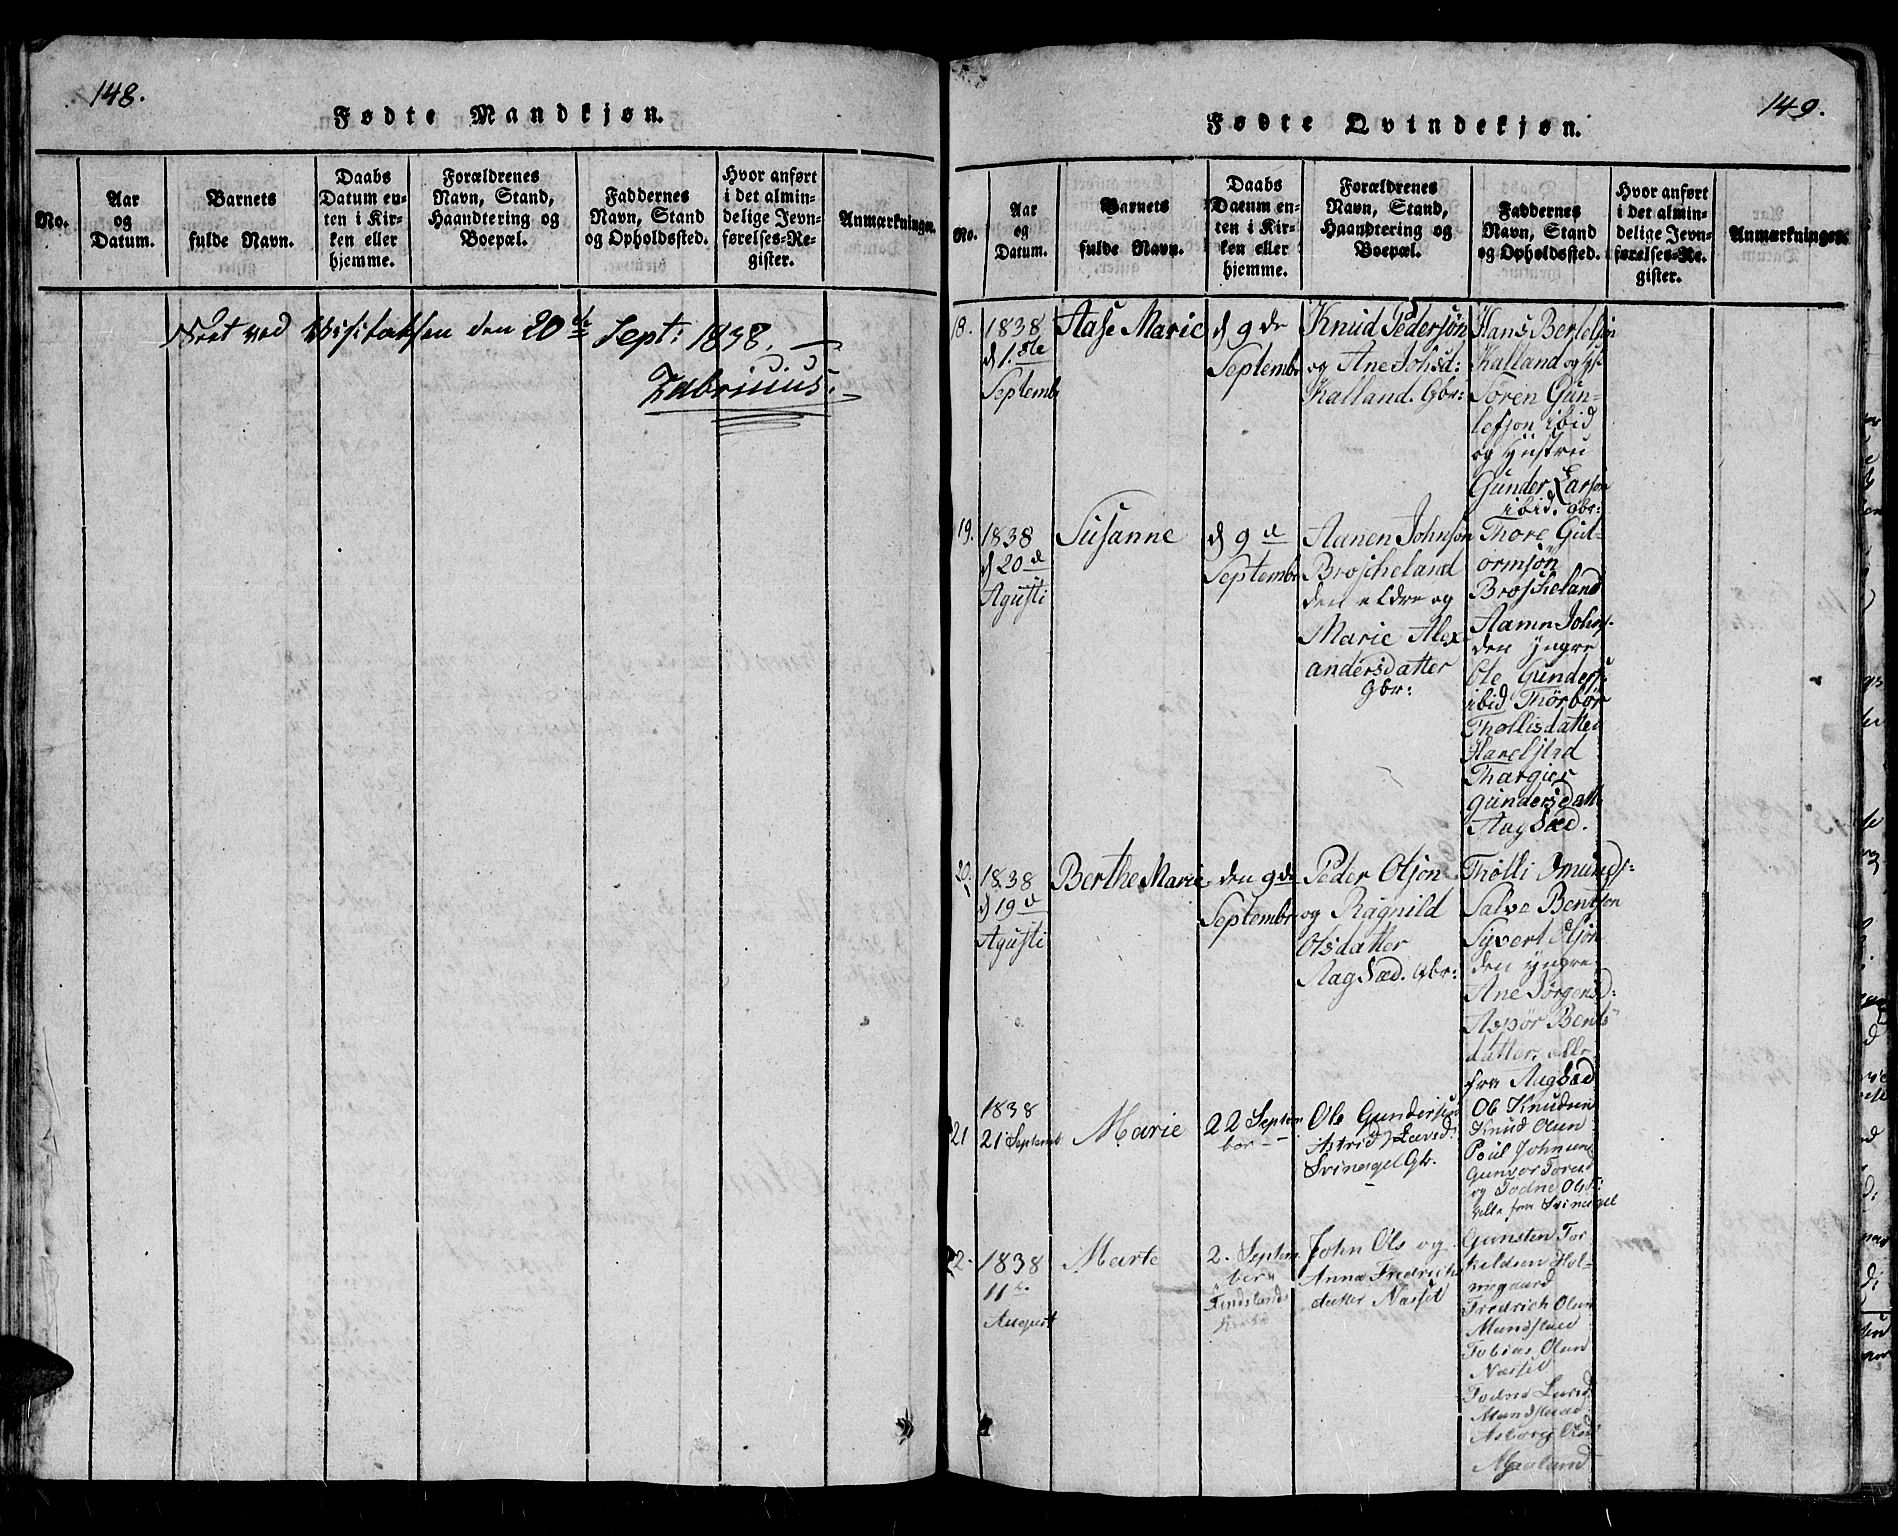 148.
Fødte Mandkjøn.
No.
Aar
og
Datum.
Barnets
fulde Navn.
Daabs
Datum en-
ten i Kir-
ken eller
hjemme.
Forældrenes
Navn, Stand,
Haandtering og
Boepæl.
Faddernes
Navn, Stand
og Opholdssted.
Hvor anført
i det almin-
delige Jevn-
førelses-Re-
gister.
Anmærkninger.
Seet ved Visitatsen den 20de Sept: 1838.
149.
Fødte Qvindekjøn.
No.
Aar
og
Datum.
Barnets
fulde Navn.
Daabs
Datum en-
ten i Kir-
ken eller
hjemme.
Forældrenes
Navn, Stand,
Haandtering og
Boepæl.
Faddernes
Navn, Stand
og Opholdssted.
Hvor anført
i det almin-
delige Jevn-
førelses-Re-
gister.
Anmærkninger.
18.
1838
d 1ste
Septembr
Aase Marie
d 9de
Septembr
Knud Pedersøn
og Ane Johsd:
Kalland. Gbr:
Hans Bertelsøn
Kalland og
Søren Gun-
lefsøn ibid
og Hustru
Gunder Larsøn
ibid. gbr:
19.
1838
d 20de
Agusti
Susanne
d 9de
Septembr
Aanen Johnsøn
Broscheland
den eldre og
Marie Alex-
andersdatter
Gbr:
Thore Gut-
ormsøn
Broscheland
Aanen Johns.
den yngre
Ole Gunders:
ibid Thorbør
Thollisdatter
Thargier
Gundersdatt.
Aagdæd.
20.
1838
d 19de
Agusti
Berthe Marie
den 9de
Septembr
Peder Olsøn
og Ragnild
Olsdatter
Aagsæd. Gbr:
Thölli Omunds:
Salve Bentson
Syvert Olsøn
den yngre
Ane Jørgensd:
Aspør Bents
datter, alle
fra Aagsæd
21
1838
21 Septemb
Marie
22 Septem
ber
Ole Gundersen
Astrid Larsd:
Svinegel Gbr.
Ole Knudsen
Knud Olsen
Poul Johnsen
Gunvor Toresd
og Todne Olsd:
Alle fra Svinegel
22.
1838
11te
August
Marte
2. Septem
ber
Findslands
Kirke
John Ols og
Anna Fredrichs
datter Nasset
Gunsten Tor
kildsen Hol-
megaard
Fredrich Olsen
Tobias Olsen
Nasset
Todne Larsd
Asborg Olsd